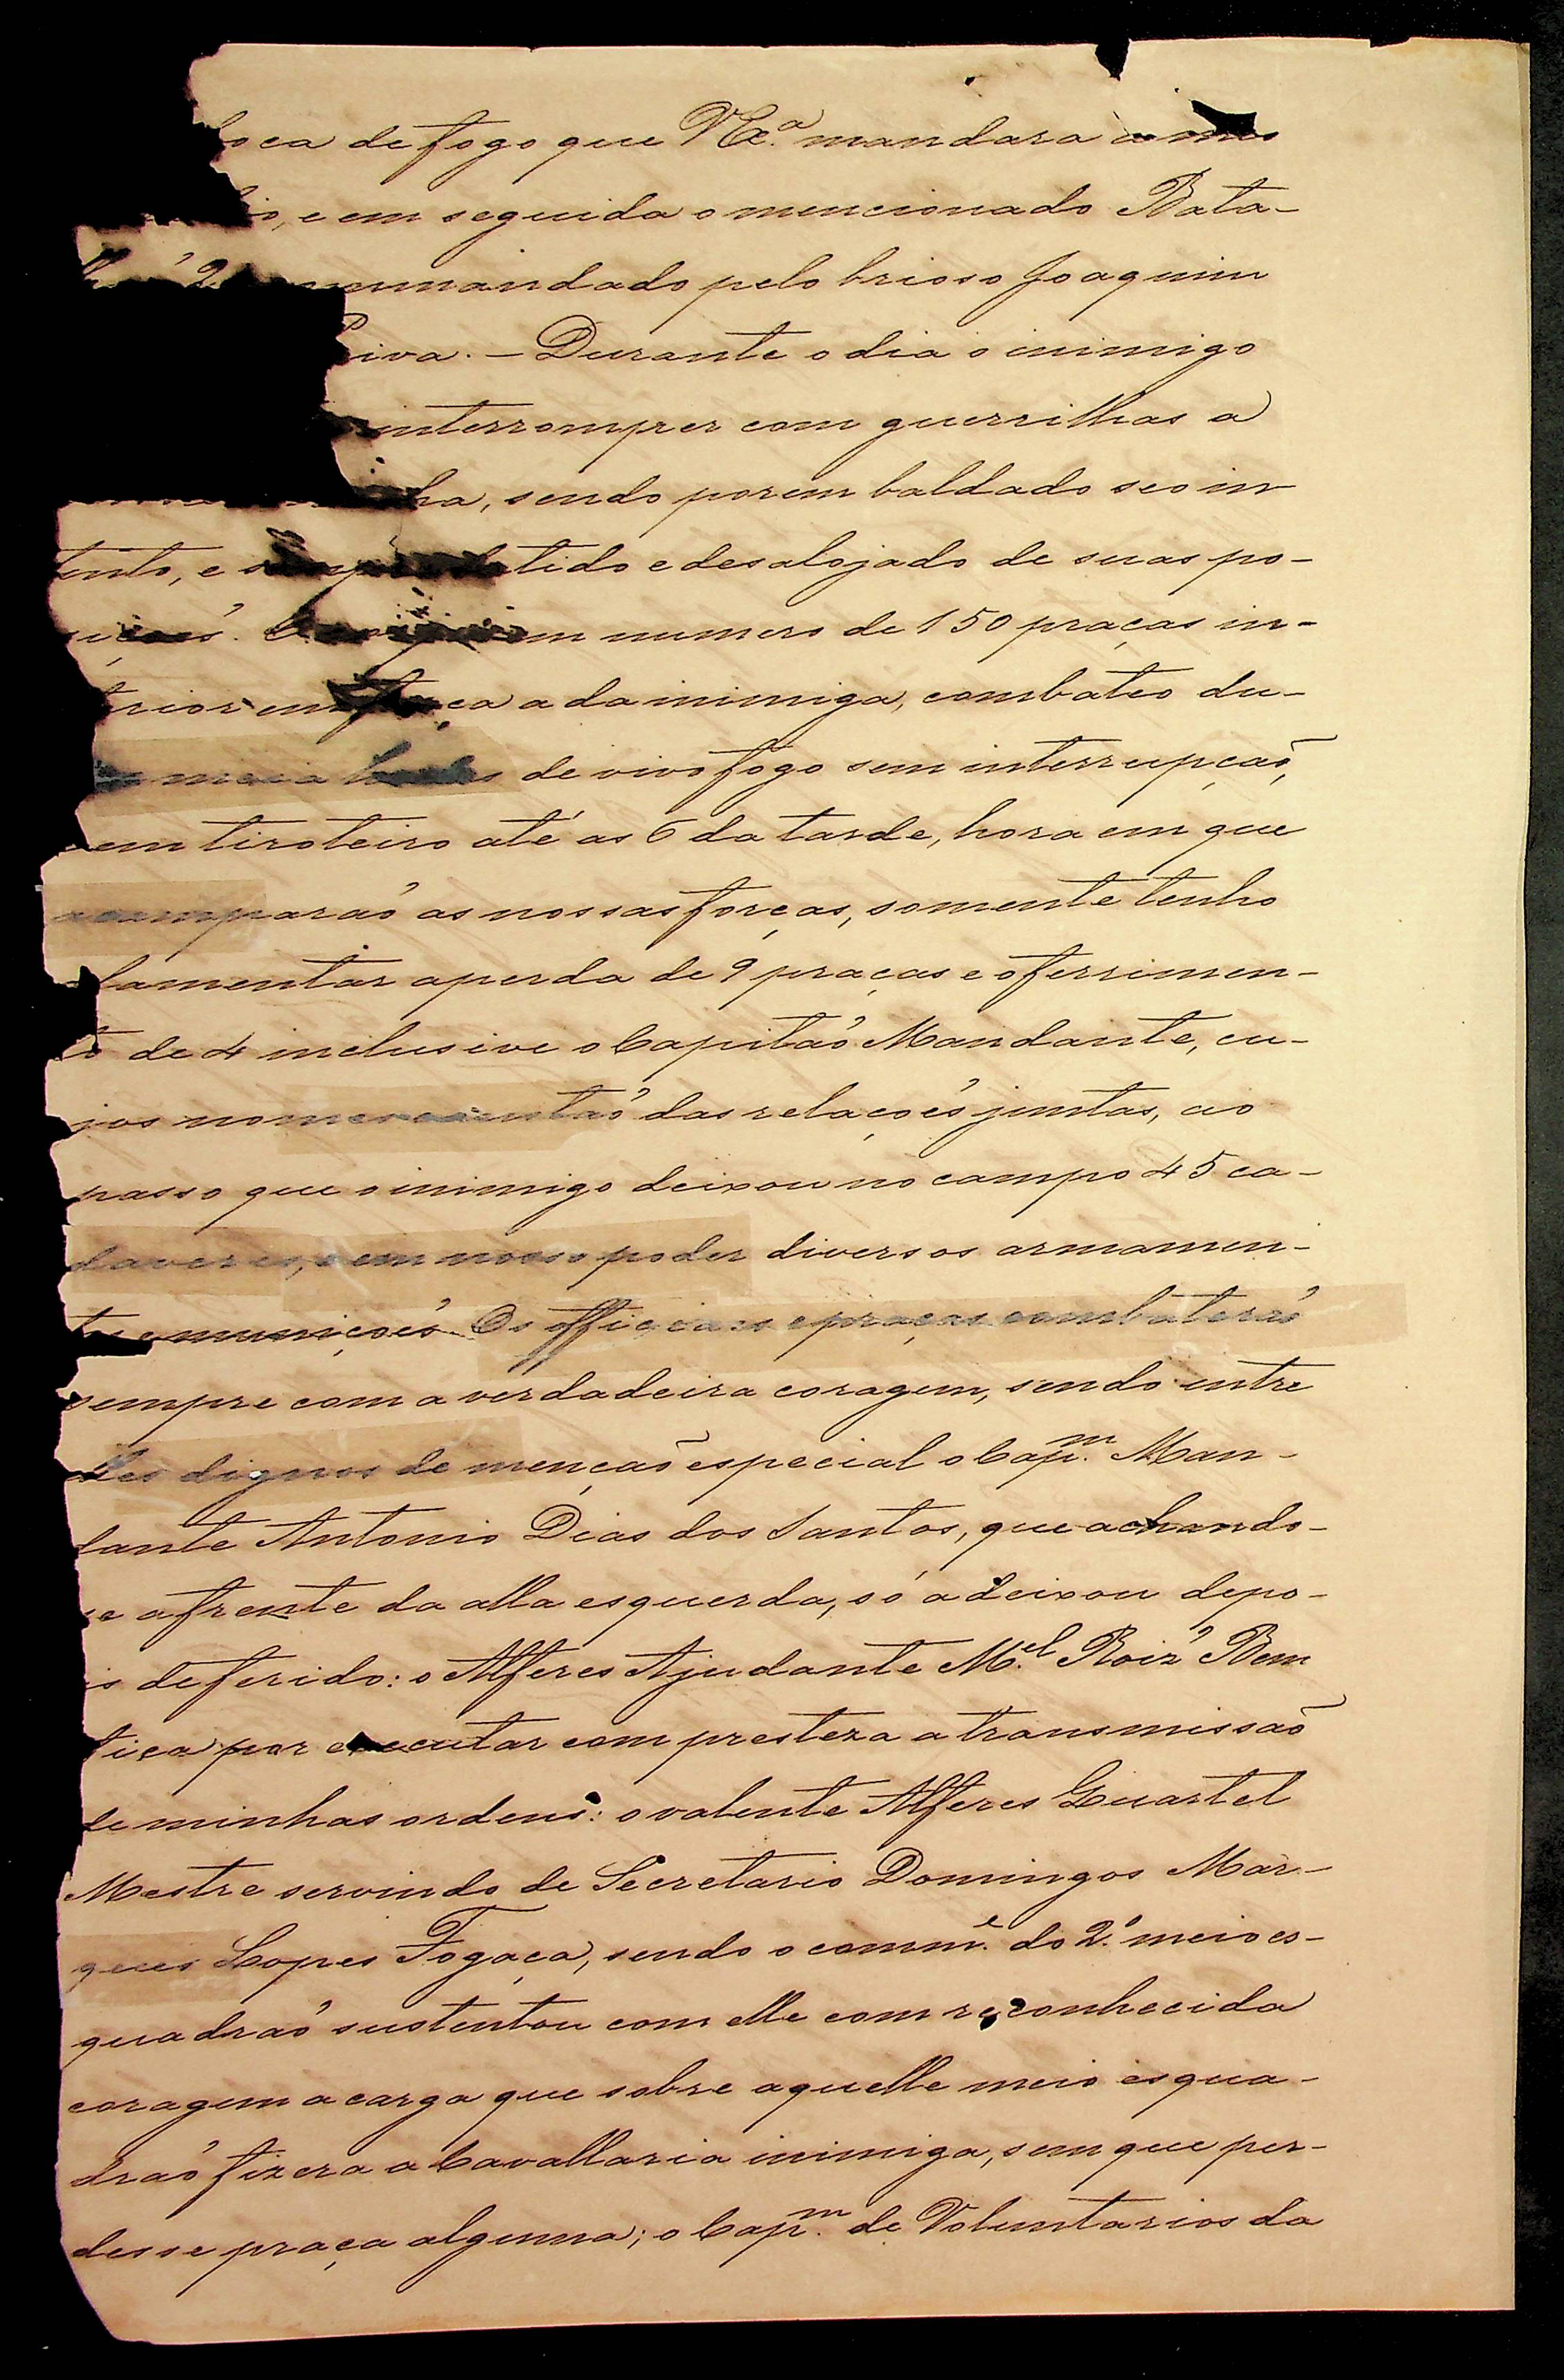 boca de fogo que VEx.ª mandara
e em seguida o mencionado Bata-
2 commandado pelo brioso Joaquim
Paiva. — Durante o dia o inimigo
interromper com guerrilhas a
sendo porem baldado seo in
tento, e sempre batido e desalojado de suas po-
sições. em numero de 150 praças in-
ferior em força a da inimiga, combateo du-
meia de vivo fogo sem interrupção,
em tiroteiro até as 6 da tarde, hora em que
acamparaõ as nossas forças, somente tenho
lamentar a perda de 9 praças e o ferrimen-
to de 4 inclusive o Capitaõ Mandante, cu-
jos nomes constaõ das relaçoẽs juntas, ao
passo que o inimigo deixou no campo 45 ca-
daveres, e em nosso poder diversos armamen-
to e muniçoẽs. Os officiaes e praças combateraõ
sempre com a verdadeira coragem, sendo entre
elles dignos de mençaõ especial o Cap.m Man-
dante Antonio Dias dos Santos, que achando-
se a frente da alla esquerda, só a deixou depo-
is de ferido: o Alferes Ajudante M.el Roiz' Bem
fica por executar com presteza a transmissaõ
de minhas ordens: o valente Alferes Quartel
Mestre servindo de Secretario Domingos Mar-
ques Lopes Fogaça, sendo o comm.e do 2.º meio es-
quadraõ sustentou com elle com reconhecida
coragem a carga que sobre aquelle meio esqua-
draõ fizera a Cavallaria inimiga, sem que per-
desse praça alguma; o Cap.m de Voluntarios da